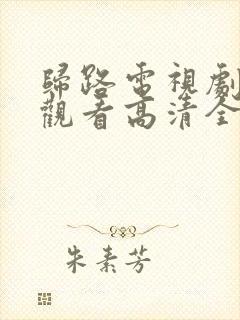 歸路電視劇
觀看高清全
朱素芳